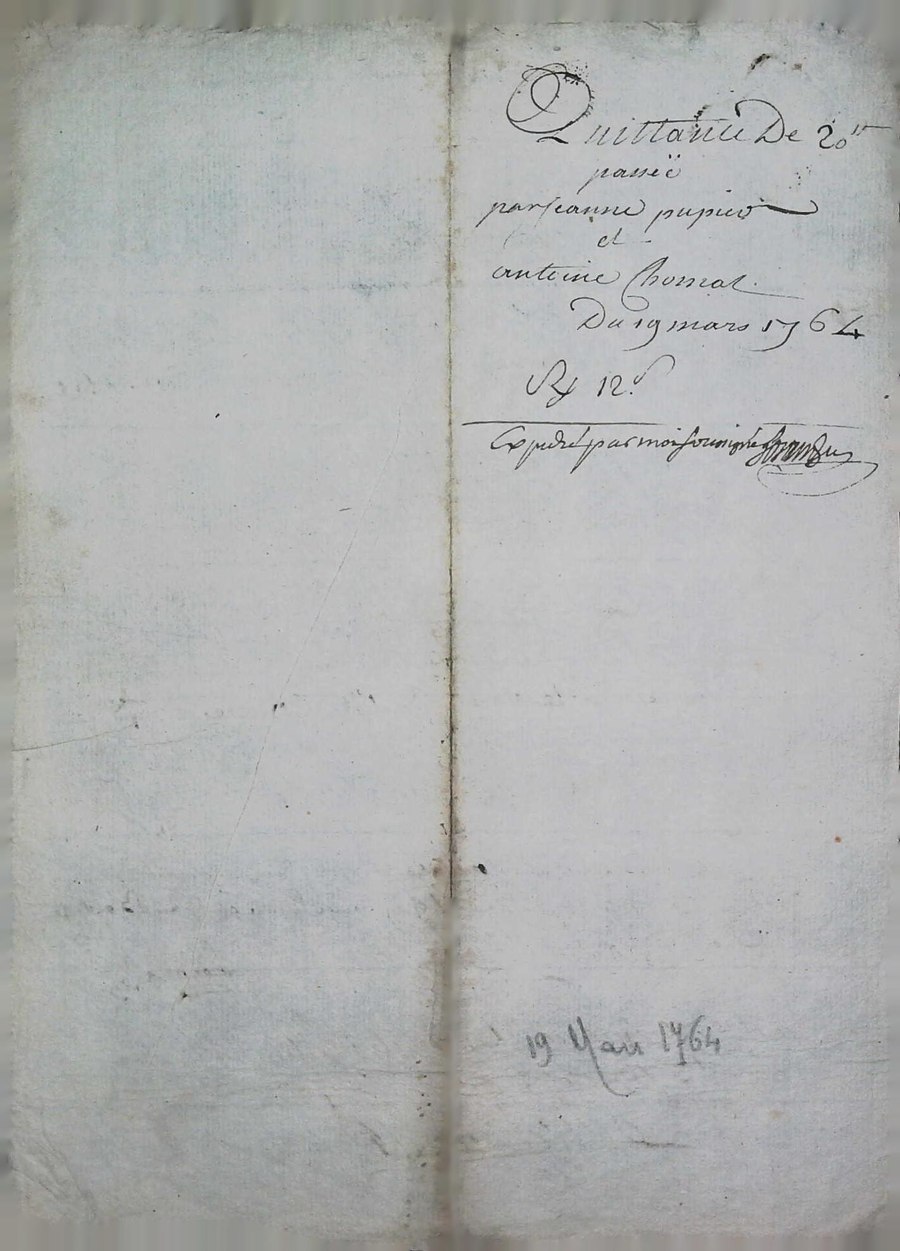 Quittance De 20 lt
passée
par jeanne pupier
et
antoine Chomat
Du 19 mars 1764
12 s
Expedié par moi soussigné
19 Mars 1764